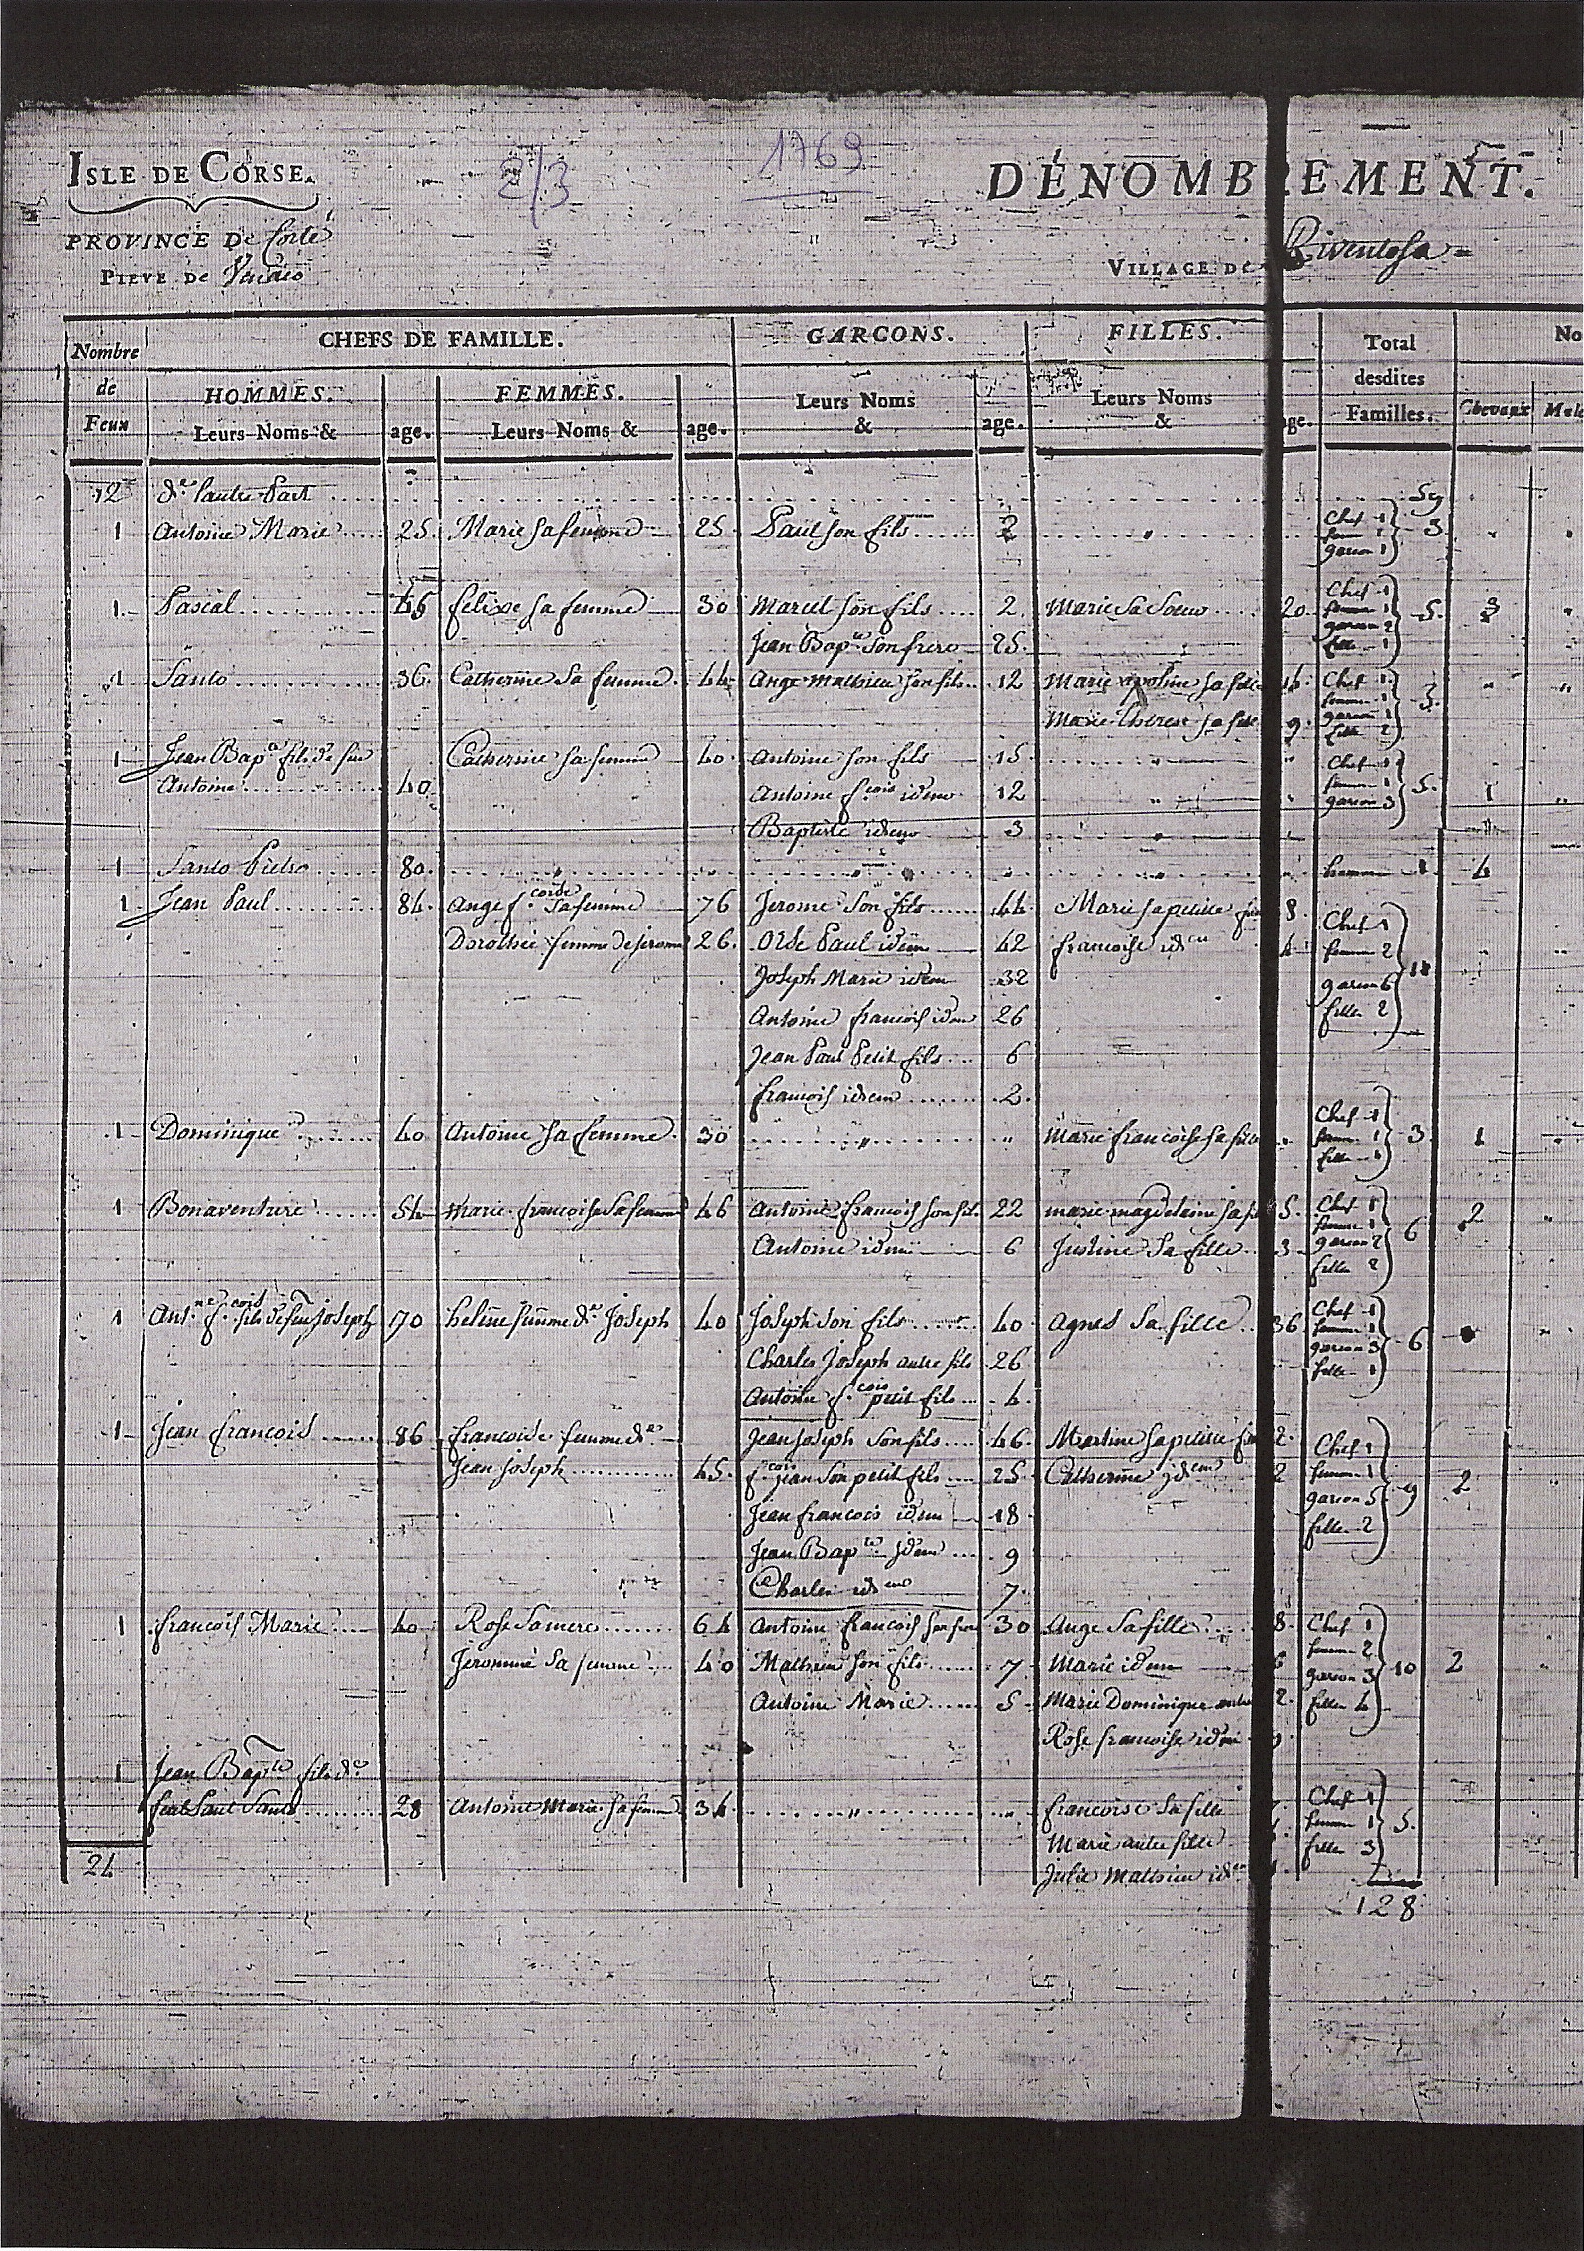 2/3
1769
ISLE DE CORSE.
DÉNOMBREMENT.
PROVINCE De Corte
PIEVE De
VILLAGE De Riventosa
Nombre de Feux
CHEFS DE FAMILLE.
GARCONS.
FILLES.
Total desdites Familles.
No
HOMMES. Leurs Noms & age.
FEMMES. Leurs Noms & age.
Leurs Noms & age.
Leurs Noms & age.
Chevaux
Mule
12 de l'autre Part 59
1 Antoine Marie 25 Marie sa femme 25 Paul son fils 2 Chef 1 femme 1 garcon 1 3
1 Pascal 45 felixe sa femme 30 Marcel son fils 2 Marie sa soeur 20 Chef 1 femme 1 garcon 2 fille 1 5 3
Jean Bapte son frere 25
1 Santo 36 Catherine sa femme 44 Ange mathieu son fils 12 Marie apoline sa fille 14 Chef 1 femme 1 garcon 1 fille 2 5
Marie Therese sa fille 9
1 Jean Bapte fils de feu Catherine sa femme 40 Antoine son fils 15 Chef 1 femme 1 garcon 3 5 1
Antoine 40 Antoine f.cois idem 12
Baptiste idem 3
1 Santo Pietro 80 homme 1 4
1 Jean Paul 84 Ange f.coise sa femme 76 Jerome son fils 44 Marie sa petite fille 8 Chef 1 femme 2 garcon 6 fille 2 11
Dorothée femme de jerome 26 Orso Paul idem 42 francoise idem 4
Joseph Marie idem 32
Antoine francois idem 26
Jean Paul Petit fils 6
francois idem 2
1 Dominique 40 Antoine sa femme 30 Marie francoise sa fille Chef 1 femme 1 fille 1 3 1
1 Bonaventure 54 Marie francoise sa femme 46 Antoine francois son fils 22 marie magdelaine sa fille 5 Chef 1 femme 1 garcon 2 fille 2 6 2
Antoine idem 6 Justine sa fille 3
1 Ant.ne f.cois fils de feu joseph 70 heline femme de Joseph 40 Joseph son fils 40 Agnes sa fille 36 Chef 1 femme 1 garcon 3 fille 1 6
Charles Joseph autre fils 26
Antoine f.cois petit fils 4
1 Jean francois 86 francoise femme de Jean joseph son fils 46 Martine sa petite fille 2 Chef 1 femme 1 garcon 5 fille 2 9 2
Jean joseph 45 f.cois jean son petit fils 25 Catherine idem 2
Jean francois idem 18
Jean Bapte idem 9
Charles idem 7
1 francois Marie 40 Rose sa mere 64 Antoine francois son frere 30 Ange sa fille 8 Chef 1 femme 2 garcon 3 fille 4 10 2
Jeromine sa femme 40 Mathieu son fils 7 Marie idem 6
Antoine Marie 5 Marie Dominique autre 2
Rose francoise idem
1 Jean Bapte fils de
feu Paul Santo 28 Antoine Marie sa femme 34 francoise sa fille 7 Chef 1 femme 1 fille 3 5
Marie autre fille
Julie Mathieu idem
24
128